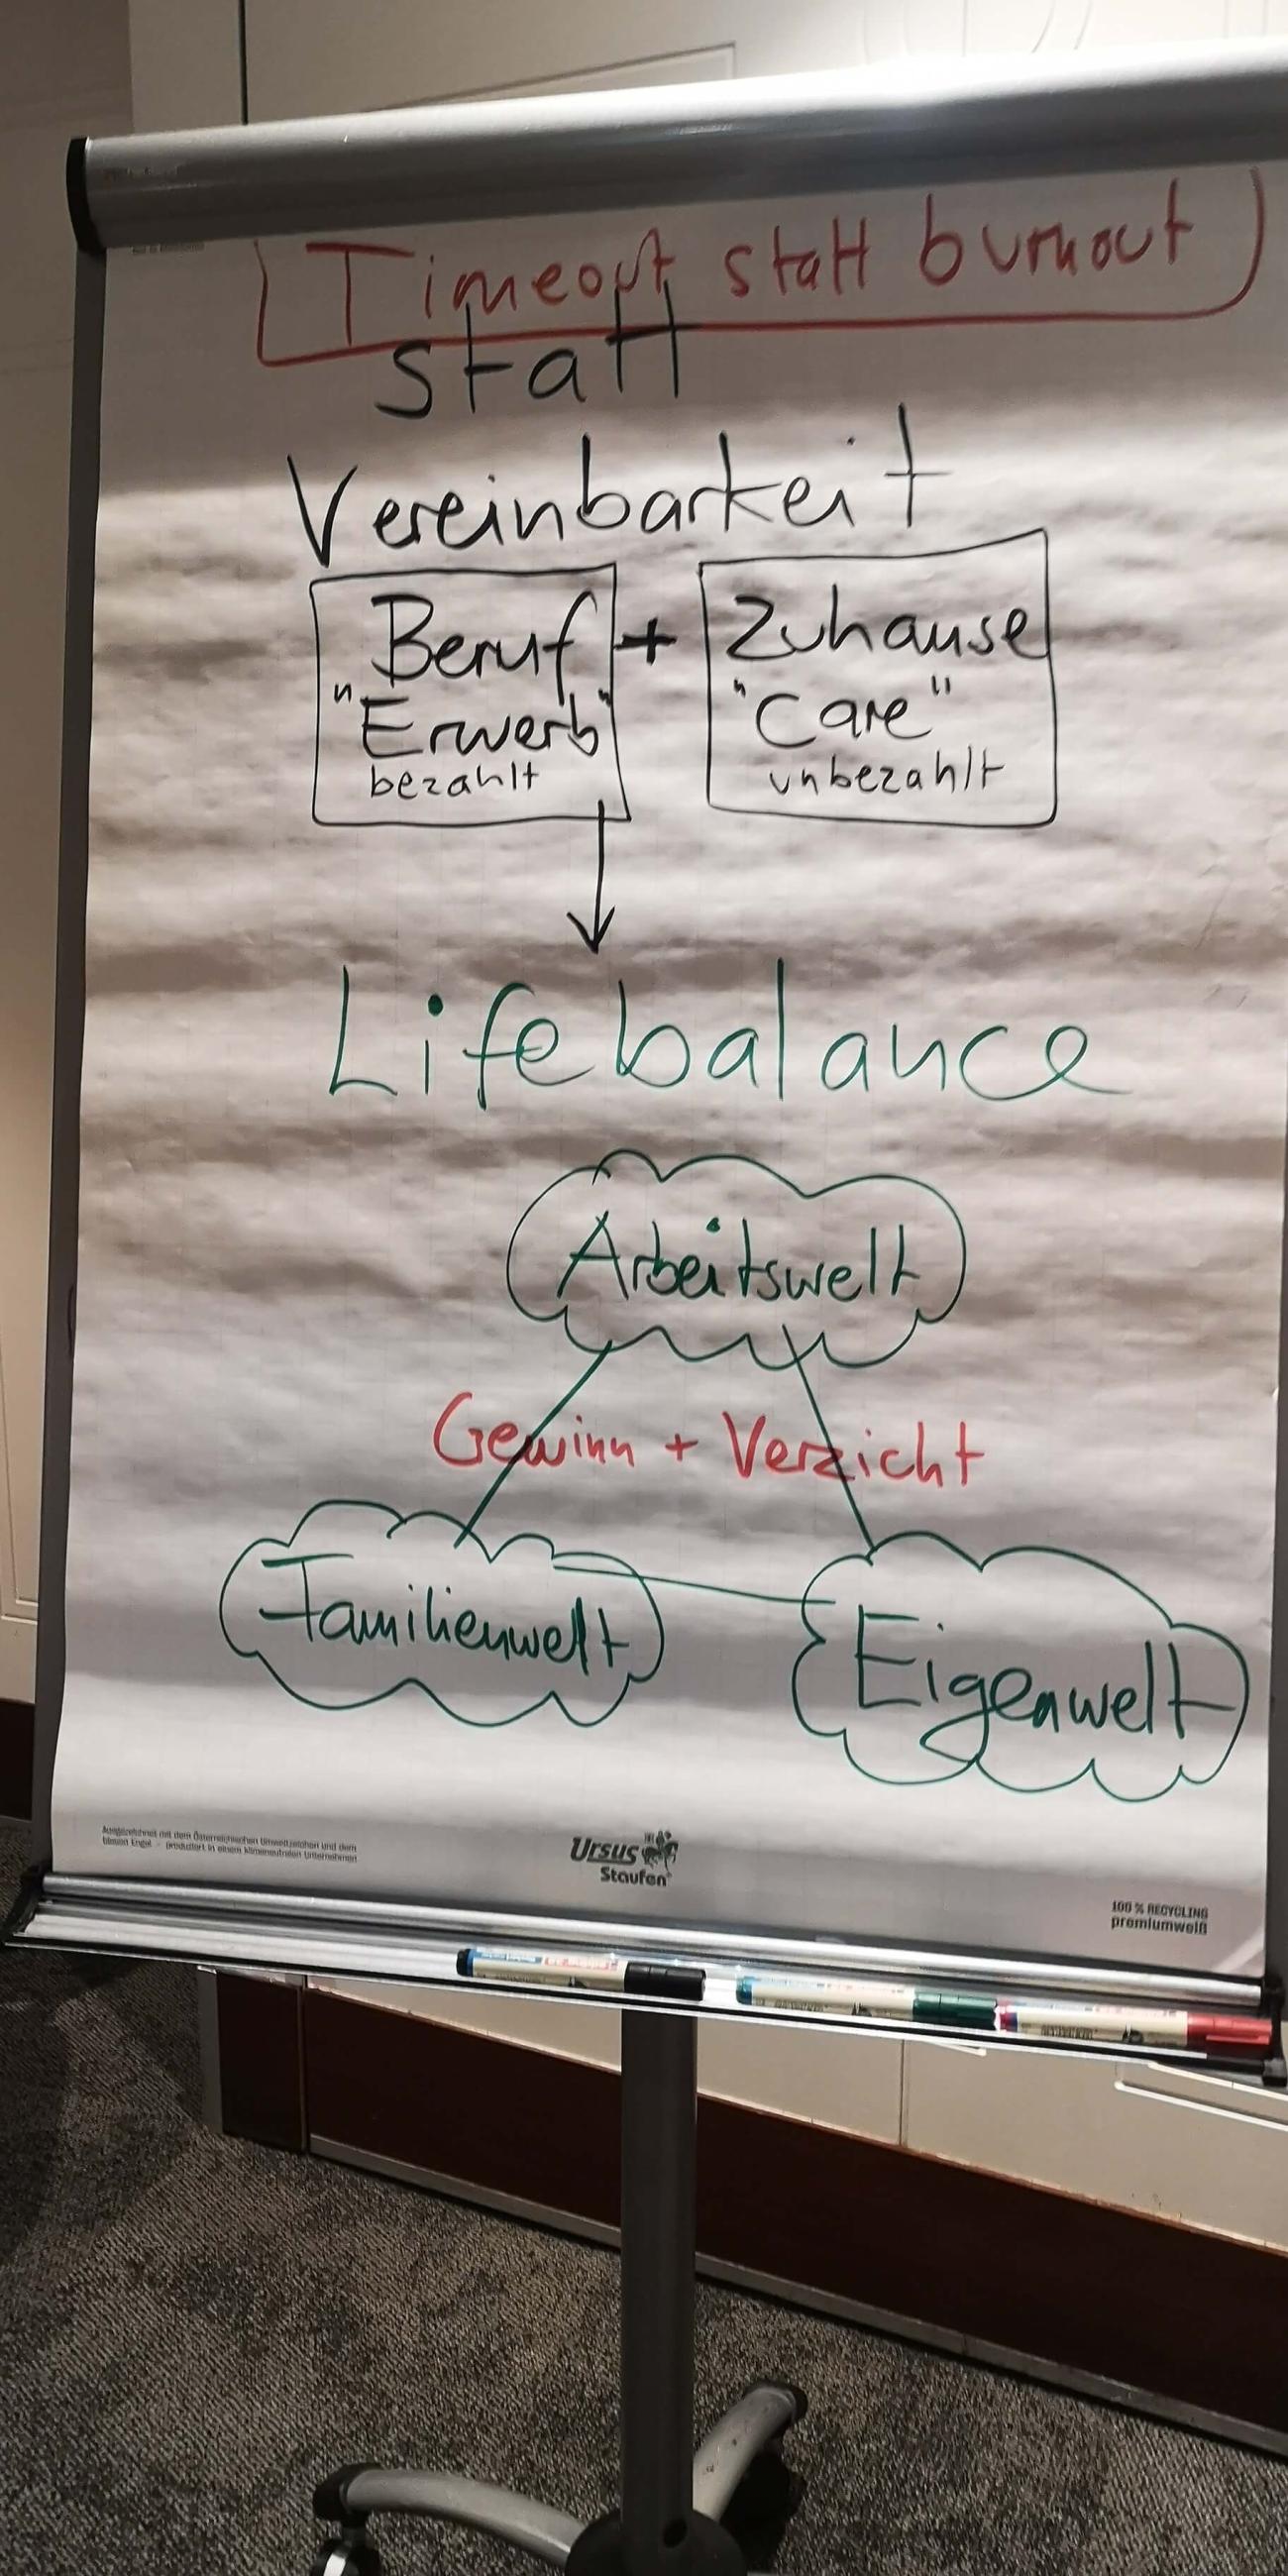 Timeout statt burnout
statt
Vereinbarkeit
Beruf + Zuhause
"Erwerb" "Care"
bezahlt unbezahlt
Lifebalance
Arbeitswelt
Gewinn + Verzicht
Familienwelt
Eigenwelt
Ausgezeichnet mit dem Österreichischen Umweltzeichen und dem
Blauen Engel - produziert in einem klimaneutralen Unternehmen
Ursus
Staufen
100 % RECYCLING
premiumweiß